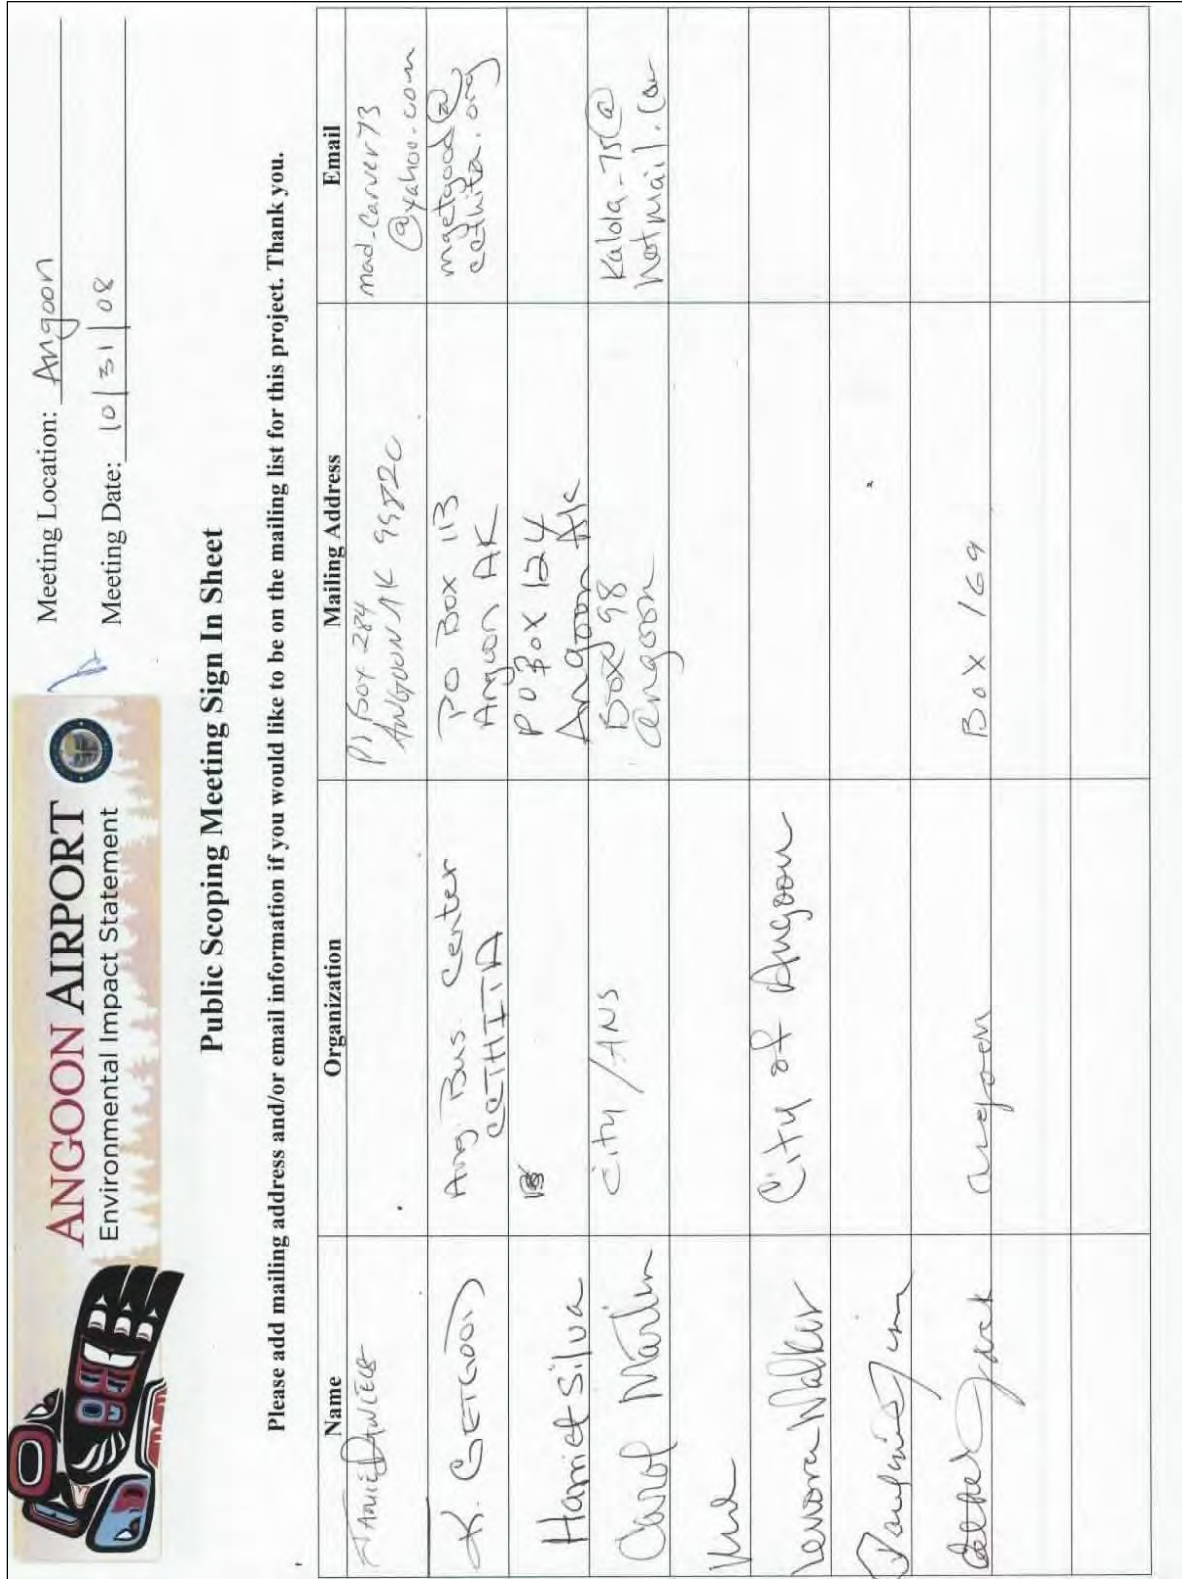 ANGOON AIRPORT
Environmental Impact Statement
Meeting Location: Angoon
Meeting Date: 10/31/08
Public Scoping Meeting Sign In Sheet
Please add mailing address and/or email information if you would like to be on the mailing list for this project. Thank you.
Name Organization Mailing Address Email
box 284 mad_carver73
ANGOON AK @yahoo.com
K. GETGOOD Ang. Bus. Center PO Box 113 mgetgood@
CCTHITA Angoon AK ccthita.org
Harriet Silva PO Box 124
Angoon Ak
Carol Martin City/ANS Box 98 Kalola_75@
Angoon hotmail.com
Walker City of Angoon
Jack angoon Box 169